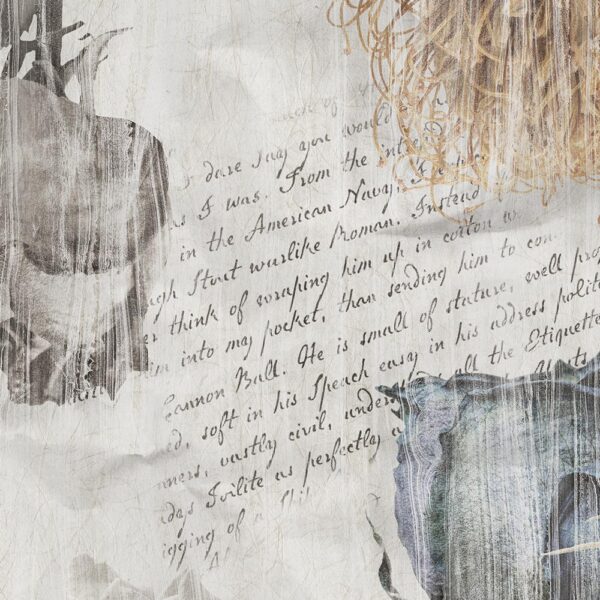 dare say you would
as I was. From the intre
in the American Navy, I
Stout warlike Roman. Instead
think of wraping him up in cotton w
into my pocket, than sending him to con
Cannon Ball. He is small of stature, well pro
soft in his Speach easy in his address polite
vastly civil, under all the Etiquette
as perfectly a
igging of a Shi